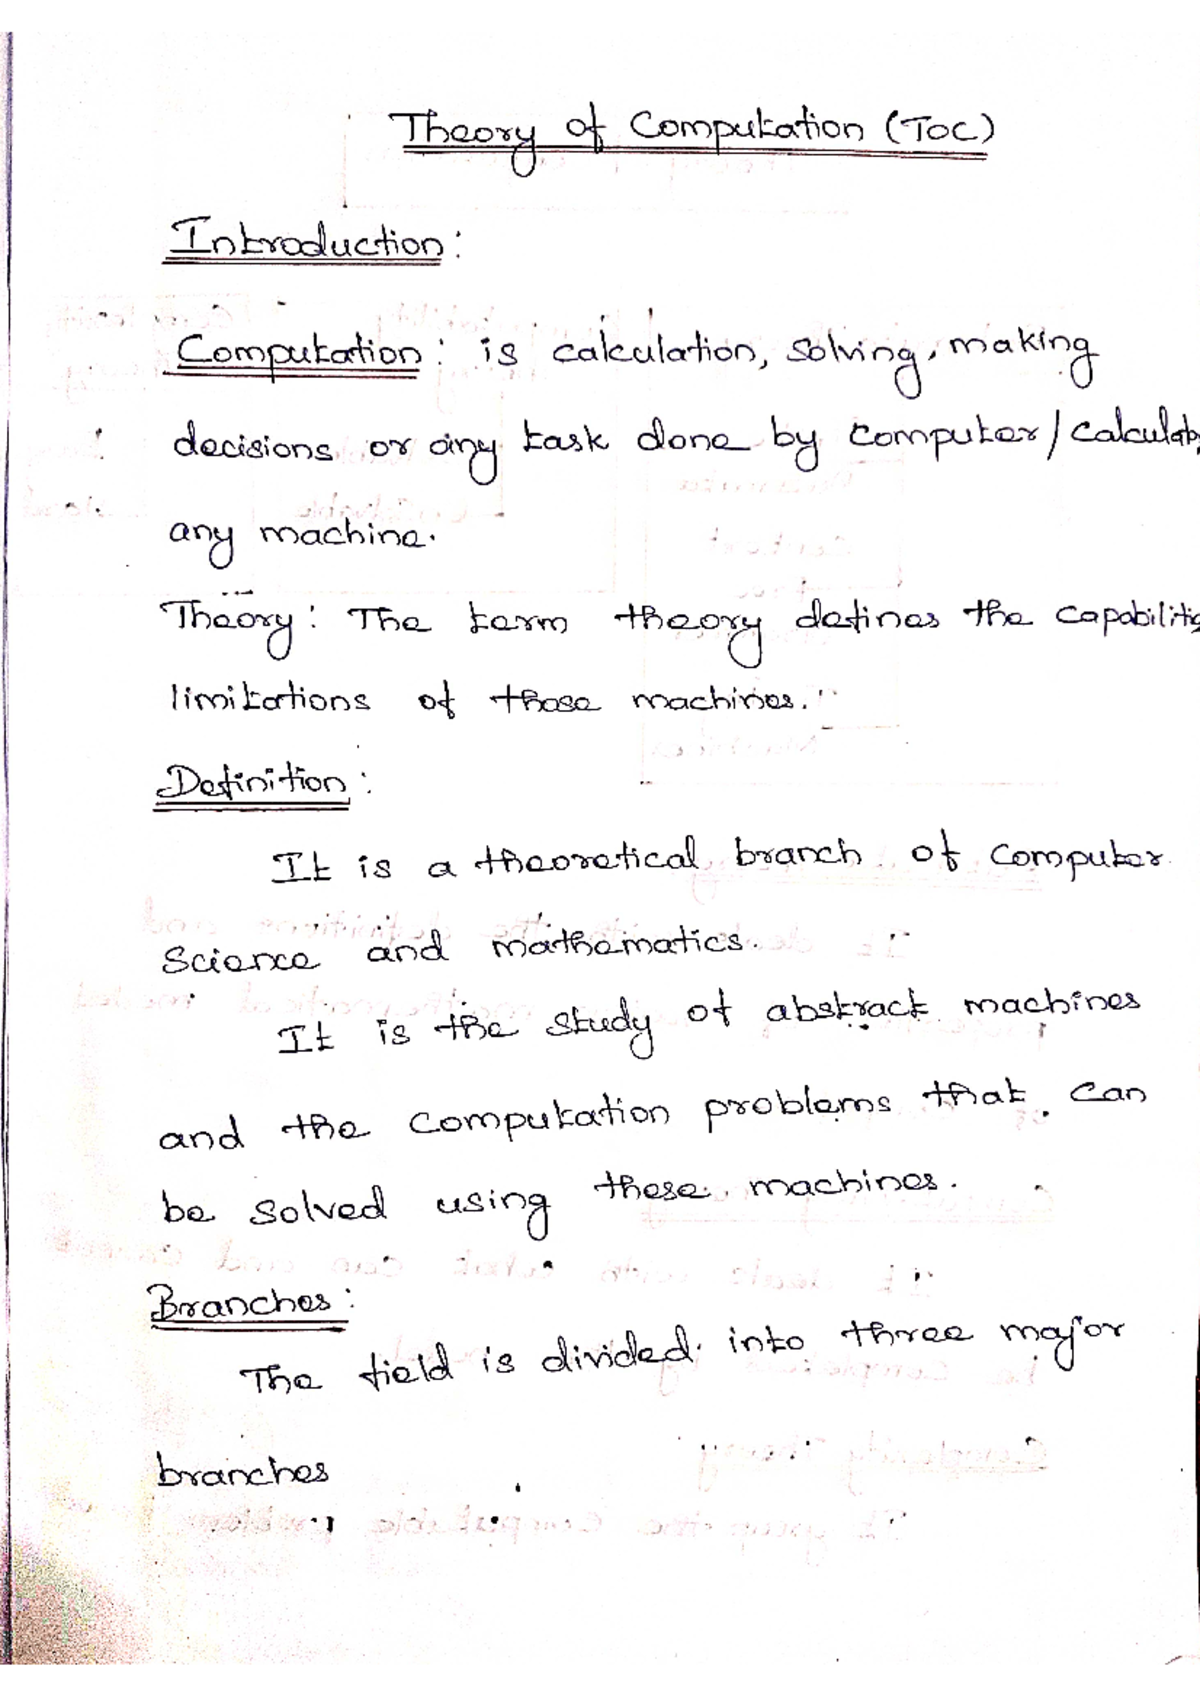 Theory of Computation (TOC)
Introduction:
Computation: is calculation, solving, making
decisions or any task done by computer/calculato
any machine.
Theory: The term theory defines the capabilitie
limitations of those machines.
Definition:
It is a theoretical branch of computer
science and mathematics.
It is the study of abstract machines
and the computation problems that can
be solved using these machines.
Branches:
The field is divided into three major
branches